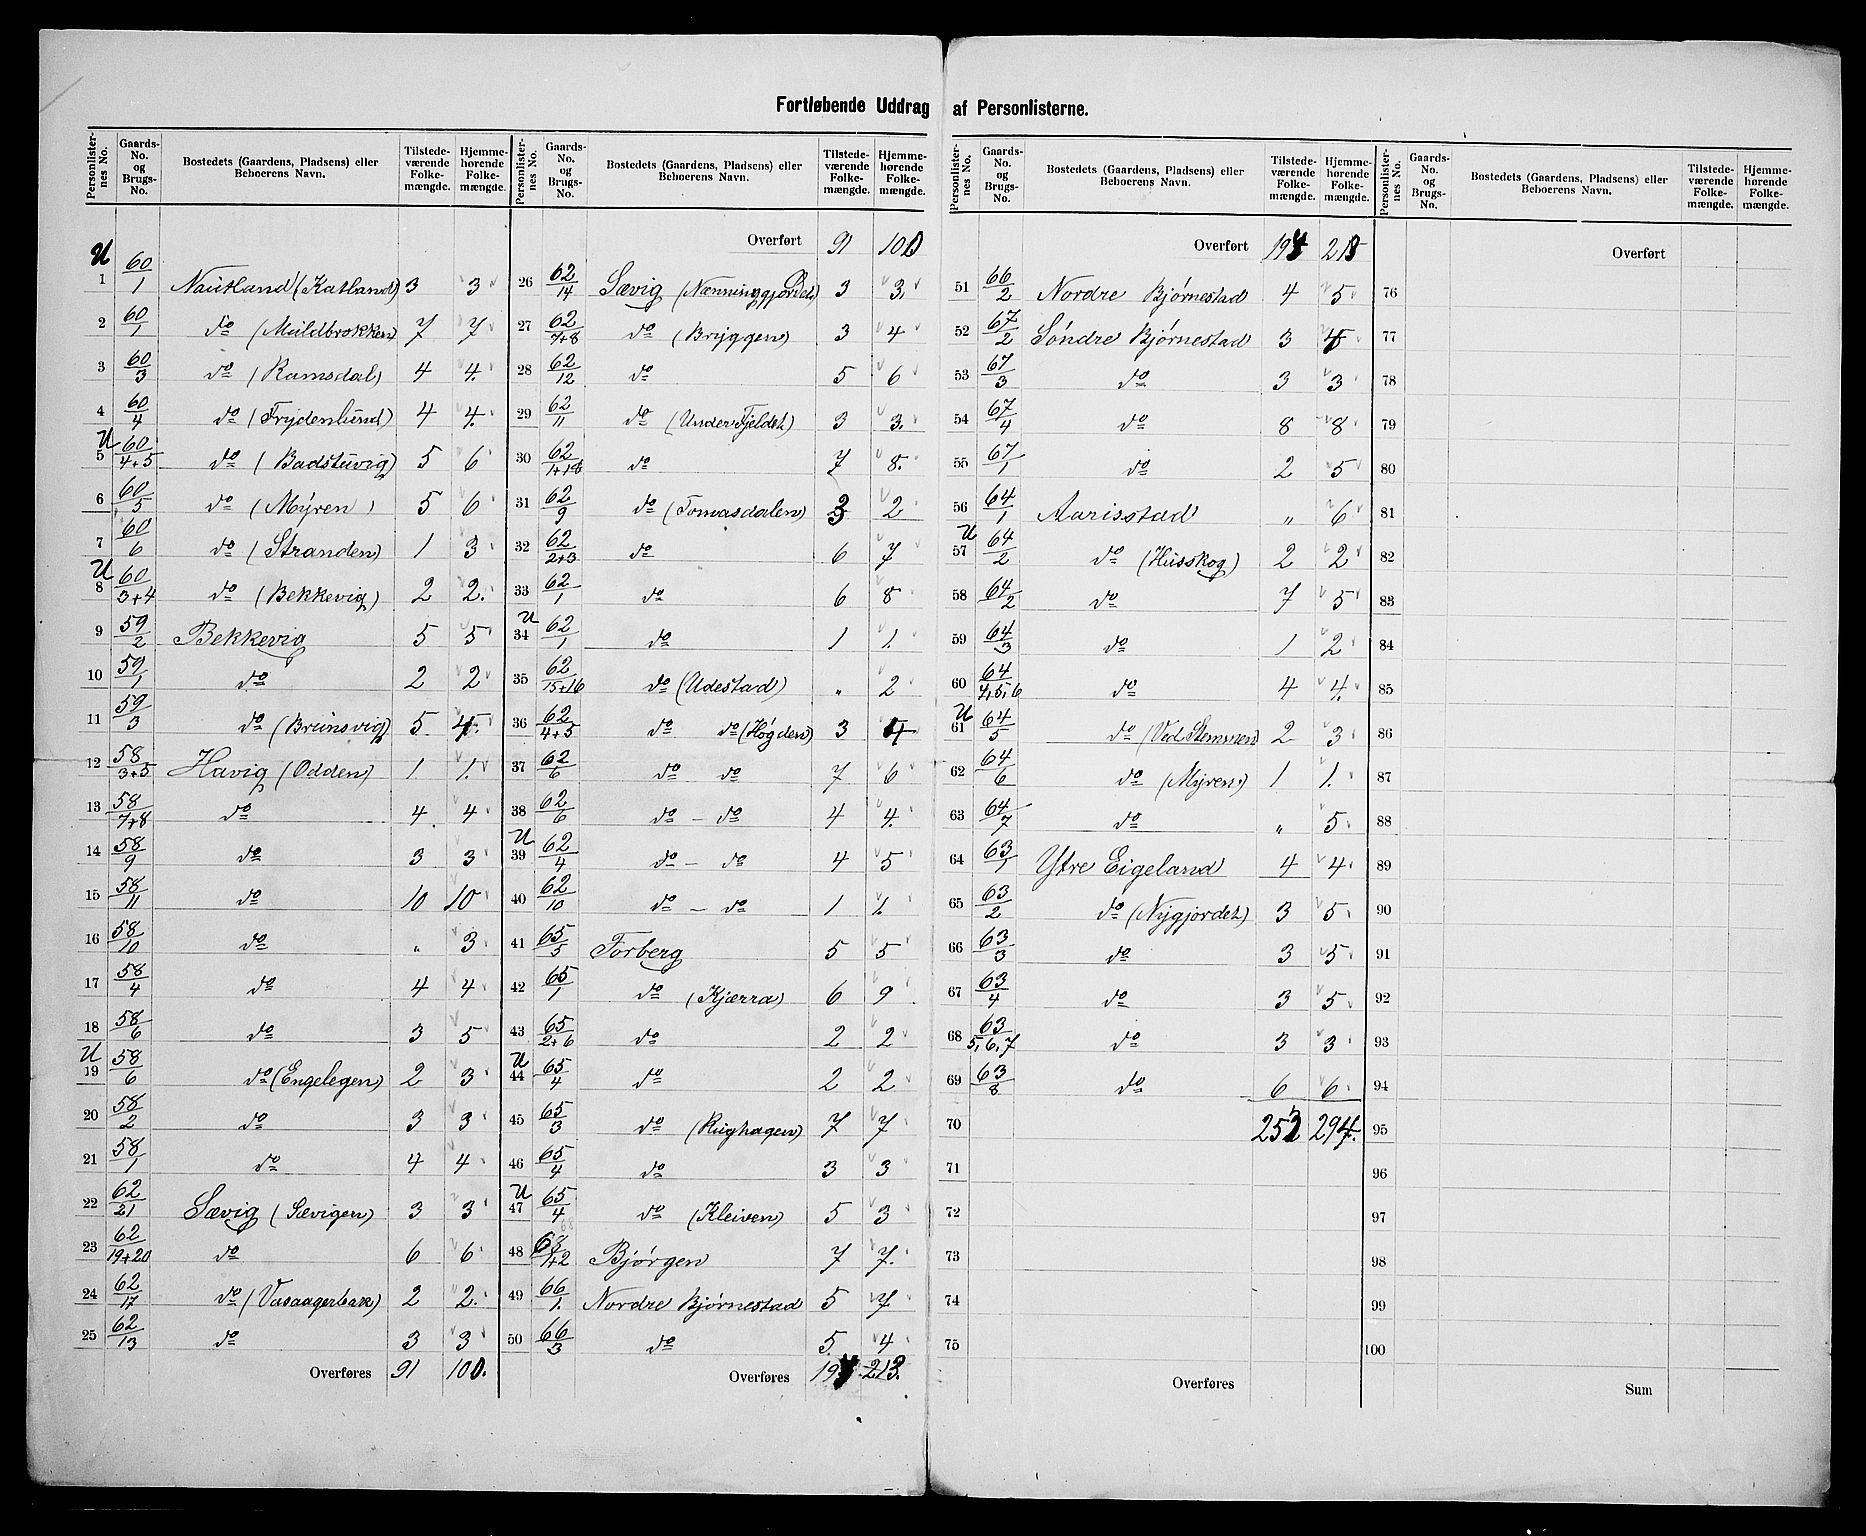 Fortløbende Uddrag af Personlisterne.
Personlisternes No. Gaards-No. og Brugs-No. Bostedets (Gaardens, Pladsens) eller Beboerens Navn. Tilstedeværende Folkemængde. Hjemmehørende Folkemængde.
U
1 60/1 Nautland (Katland) 3 3
2 60/1 do (Muldbrokken) 7 7
3 60/3 do (Ramsdal) 4 4.
4 60/4 do (Frydenlund) 4 4.
U 5 60/4+5 do (Badstuvig) 5 6
6 60/5 do (Myren) 5 6
7 60/6 do (Stranden) 1 3
U 8 60/3+4 do (Bekkevig) 2 2.
9 59/2 Bekkevig 5 5
10 59/1 do 2 2
11 59/3 do (Brunsvig) 5
12 58/3+5 Havig (Odden) 1 1.
13 58/7+8 do 4 4
14 58/9 do 3 3
15 58/11 do 10 10
16 58/10 do " 3
17 58/4 do 4 4
18 58/6 do 3 5
U 19 58/6 do (Engelegen) 2 3
20 58/2 do 3 3
21 58/1 do 4 4
22 62/21 Sævig (Sævigen) 3 3
23 62/19+20 do 6 6
24 62/17 do (Vasaagerbak) 2 2.
25 62/13 do 3 3
Overføres 91 100.
Personlisternes No. Gaards-No. og Brugs-No. Bostedets (Gaardens, Pladsens) eller Beboerens Navn. Tilstedeværende Folkemængde. Hjemmehørende Folkemængde.
Overført 91 100
26 62/14 Sævig 3 3.
27 62/7+8 do (Bryggen) 3 4
28 62/12 do 5 6
29 62/11 do (Under Fjeldet) 3 3.
30 62/1+18 do 7 8.
31 62/9 do (Tomasdalen) 3 2
32 62/2+3 do 6 7
33 62/1 do 6 8
U 34 62/1 do 1 1.
35 62/15+16 do (Udestad) " 2
36 62/4+5 do do (Høgden) 3 4
37 62/6 do do 7 6
38 62/6 do - do 4 4.
U 39 62/4 do - do 4 5
40 62/10 do - do 1 1.
41 65/5 Forberg 5 5
42 65/1 do (Kjærra) 6 9
43 65/2+6 do 2 2
U 44 65/4 do 2 2
45 65/3 do (Rughagen) 7 7
46 65/4 do 3 3
U 47 65/4 do (Kleiven) 5 3
48 68/1+2 Bjørgen 7 7.
49 66/1. Nordre Bjørnestad 5 7
50 66/3 do 5 4
Overføres 213.
Personlisternes No. Gaards-No. og Brugs-No. Bostedets (Gaardens, Pladsens) eller Beboerens Navn. Tilstedeværende Folkemængde. Hjemmehørende Folkemængde.
Overført
51 66/2 Nordre Bjørnestad 4 5
52 67/2 Søndre Bjørnestad 3
53 67/3 do 3 3
54 67/4 do 8 8
55 67/1 do 2 5
56 64/1 Aarisstad " 6
U 57 64/2 do (Husskog) 2 2
58 64/2 do 7 5
59 64/3 do 1 2
60 64/4,5,6 do 4 4.
U 61 64/5 do (Ved Stemmen) 2 3
62 64/6 do (Myren.) 1 1.
63 64/7 do " 5
64 63/1 Ytre Eigeland 4 4
65 63/2 do (Nygjordet) 3 5
66 63/3 do 3 5
67 63/4 do 3 5
68 63/5,6,7 do 3 3
69 63/8 do 6 6
70 294.
71
72
73
74
75
Overføres
Personlisternes No. Gaards-No. og Brugs-No. Bostedets (Gaardens, Pladsens) eller Beboerens Navn. Tilstedeværende Folkemængde. Hjemmehørende Folkemængde.
Overført
76
77
78
79
80
81
82
83
84
85
86
87
88
89
90
91
92
93
94
95
96
97
98
99
100
Sum